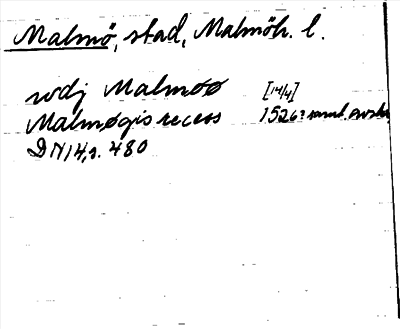 Malmö, stad, Malmöh. l.
wdj Malmøø [14/4]
Malmøgis recess 1526? saml. avskr
DN 14, s. 480